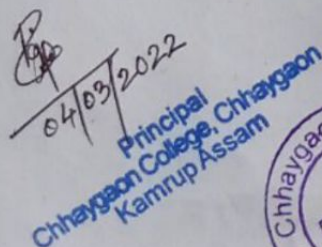 04/03/2022
Principal
Chhaygaon College, Chhaygaon
Kamrup Assam
Chhayga